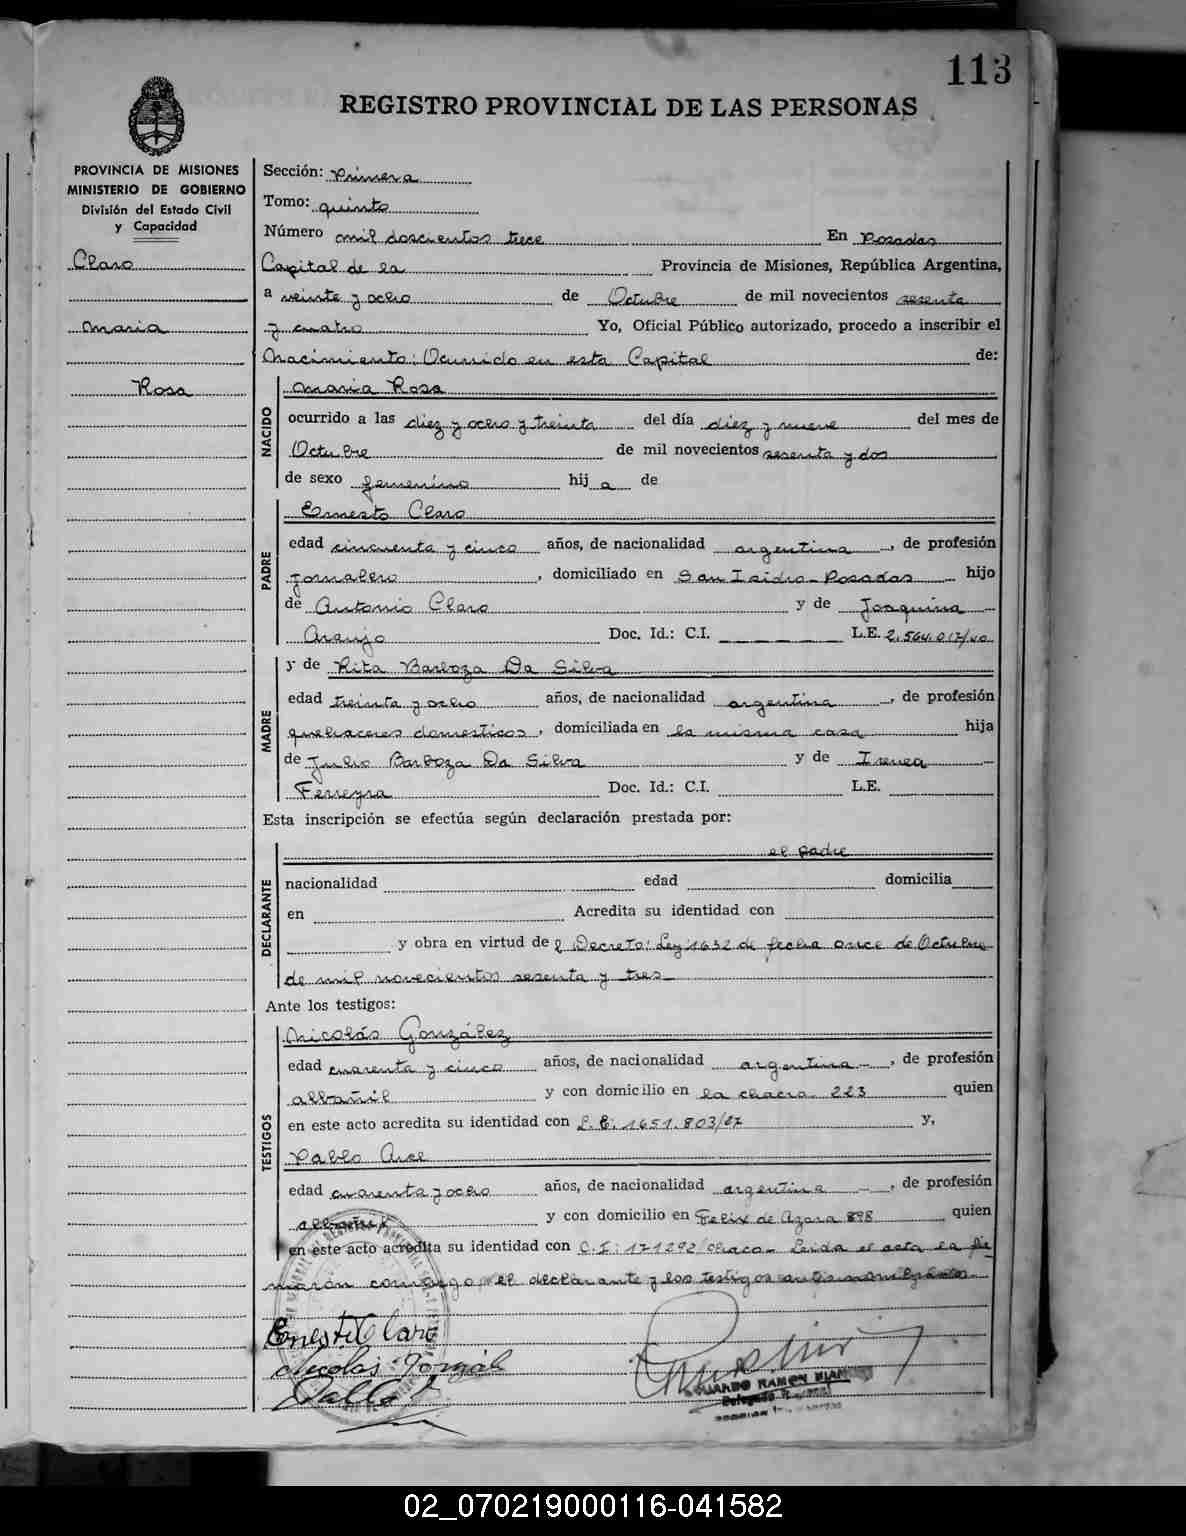 113
REGISTRO PROVINCIAL DE LAS PERSONAS
PROVINCIA DE MISIONES
MINISTERIO DE GOBIERNO
División del Estado Civil
y Capacidad
Claro
Maria
Rosa
Sección: Primera
Tomo: quinto
Número mil doscientos trece En Posadas
Capital de la Provincia de Misiones, República Argentina,
a veinte y ocho de Octubre de mil novecientos sesenta
y cuatro Yo, Oficial Público autorizado, procedo a inscribir el
Nacimiento: Ocurrido en esta Capital de:
NACIDO
Maria Rosa
ocurrido a las diez y ocho y treinta del día diez y nueve del mes de
Octubre de mil novecientos sesenta y dos
de sexo femenino hija de
PADRE
Ernesto Claro
edad cincuenta y cinco años, de nacionalidad argentina, de profesión
jornalero, domiciliado en San Isidro - Posadas hijo
de Antonio Claro y de Joaquina
Araujo Doc. Id.: C.I. — — — — — L.E. 2.564.017/40
MADRE
y de Rita Barboza Da Silva
edad treinta y ocho años, de nacionalidad argentina, de profesión
quehaceres domesticos, domiciliada en la misma casa hija
de Julio Barboza Da Silva y de Irenea
Ferreyra Doc. Id.: C.I. L.E.
Esta inscripción se efectúa según declaración prestada por:
DECLARANTE
el padre
nacionalidad edad domicilia
en Acredita su identidad con
y obra en virtud del Decreto: Ley 1632 de fecha once de Octubre
de mil novecientos sesenta y tres
Ante los testigos:
TESTIGOS
Nicolás González
edad cuarenta y cinco años, de nacionalidad argentina, de profesión
albañil y con domicilio en la chacra 223 quien
en este acto acredita su identidad con L.E. 1651.803/27 y,
Pablo Arce
edad cuarenta y ocho años, de nacionalidad argentina, de profesión
albañil y con domicilio en Felix de Azara 898 quien
en este acto acredita su identidad con C.I: 171292/Chaco - Leida el acta la fir
marón conmigo, el declarante y los testigos
Ernesto Claro
Nicolas Gonzál
Pablo
EDUARDO RAMON
Delegado
02_070219000116-041582